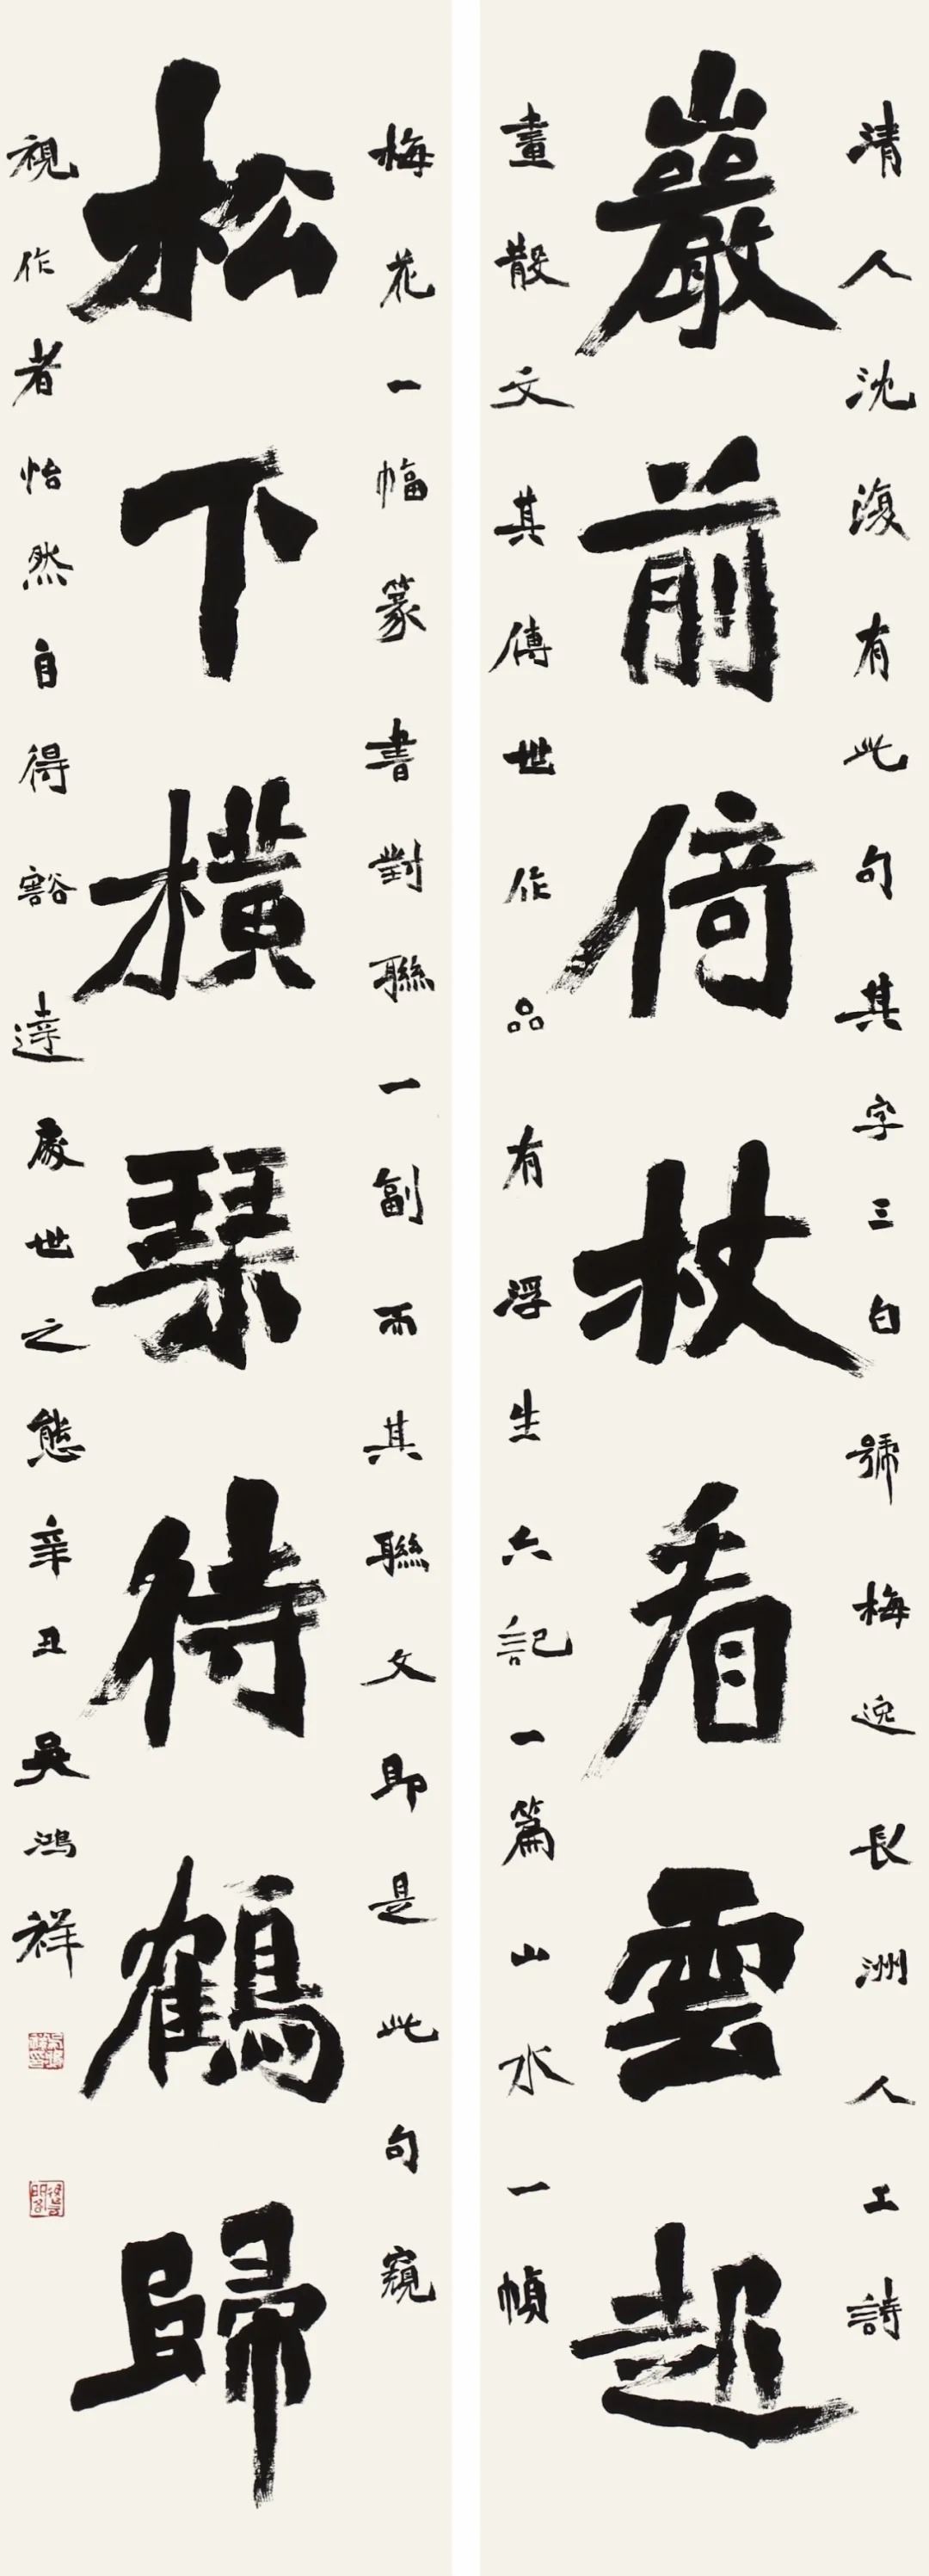 清人沈復有此句其字三白號梅逸長洲人工詩
巖前倚杖看雲起
畫散文其傳世作品有浮生六記一篇山水一幀
梅花一幅篆書對聯一副而其聯文即是此句窺
松下橫琴待鶴歸
視作者怡然自得豁達處世之態辛丑吳鴻祥